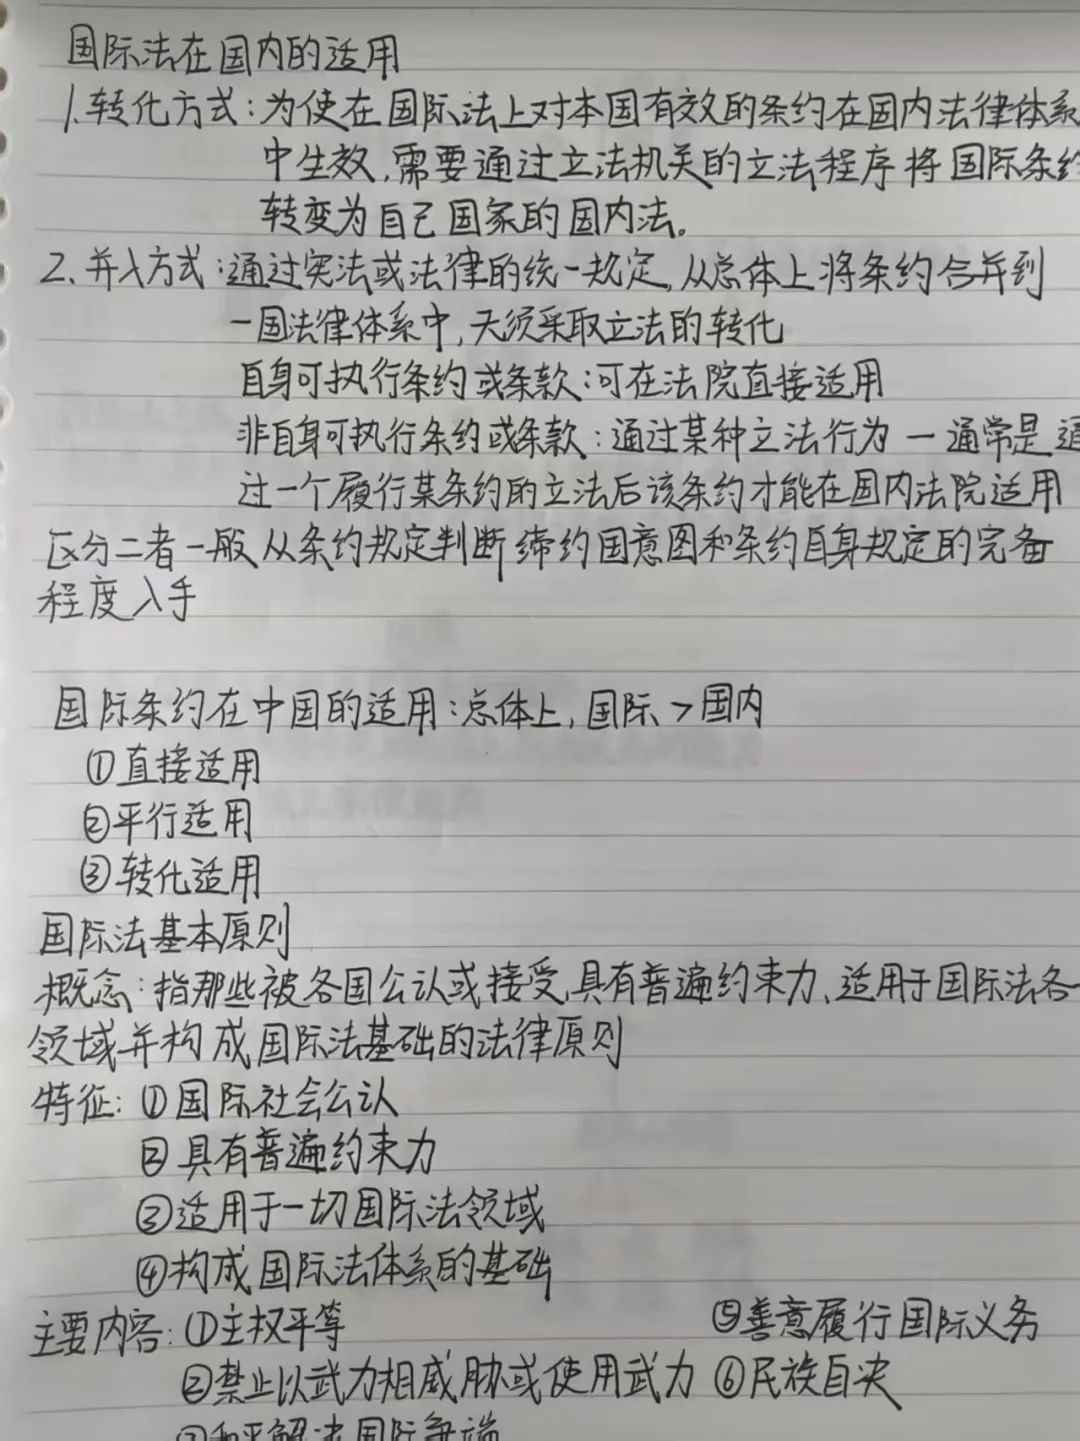 国际法在国内的适用
1.转化方式:为使在国际法上对本国有效的条约在国内法律体系
中生效,需要通过立法机关的立法程序将国际条约
转变为自己国家的国内法。
2、并入方式:通过宪法或法律的统一规定,从总体上将条约合并到
一国法律体系中,无须采取立法的转化
自身可执行条约或条款:可在法院直接适用
非自身可执行条约或条款:通过某种立法行为 一通常是通
过一个履行某条约的立法后该条约才能在国内法院适用
区分二者一般从条约规定判断缔约国意图和条约自身规定的完备
程度入手
国际条约在中国的适用:总体上,国际>国内
①直接适用
②平行适用
③转化适用
国际法基本原则
概念:指那些被各国公认或接受,具有普遍约束力、适用于国际法各
领域并构成国际法基础的法律原则
特征:①国际社会公认
②具有普遍约束力
③适用于一切国际法领域
④构成国际法体系的基础
主要内容:①主权平等 ⑤善意履行国际义务
②禁止以武力相威胁或使用武力 ⑥民族自决
③和平解决国际争端